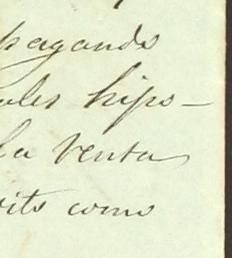 pagando
ales hips-
la venta
its como